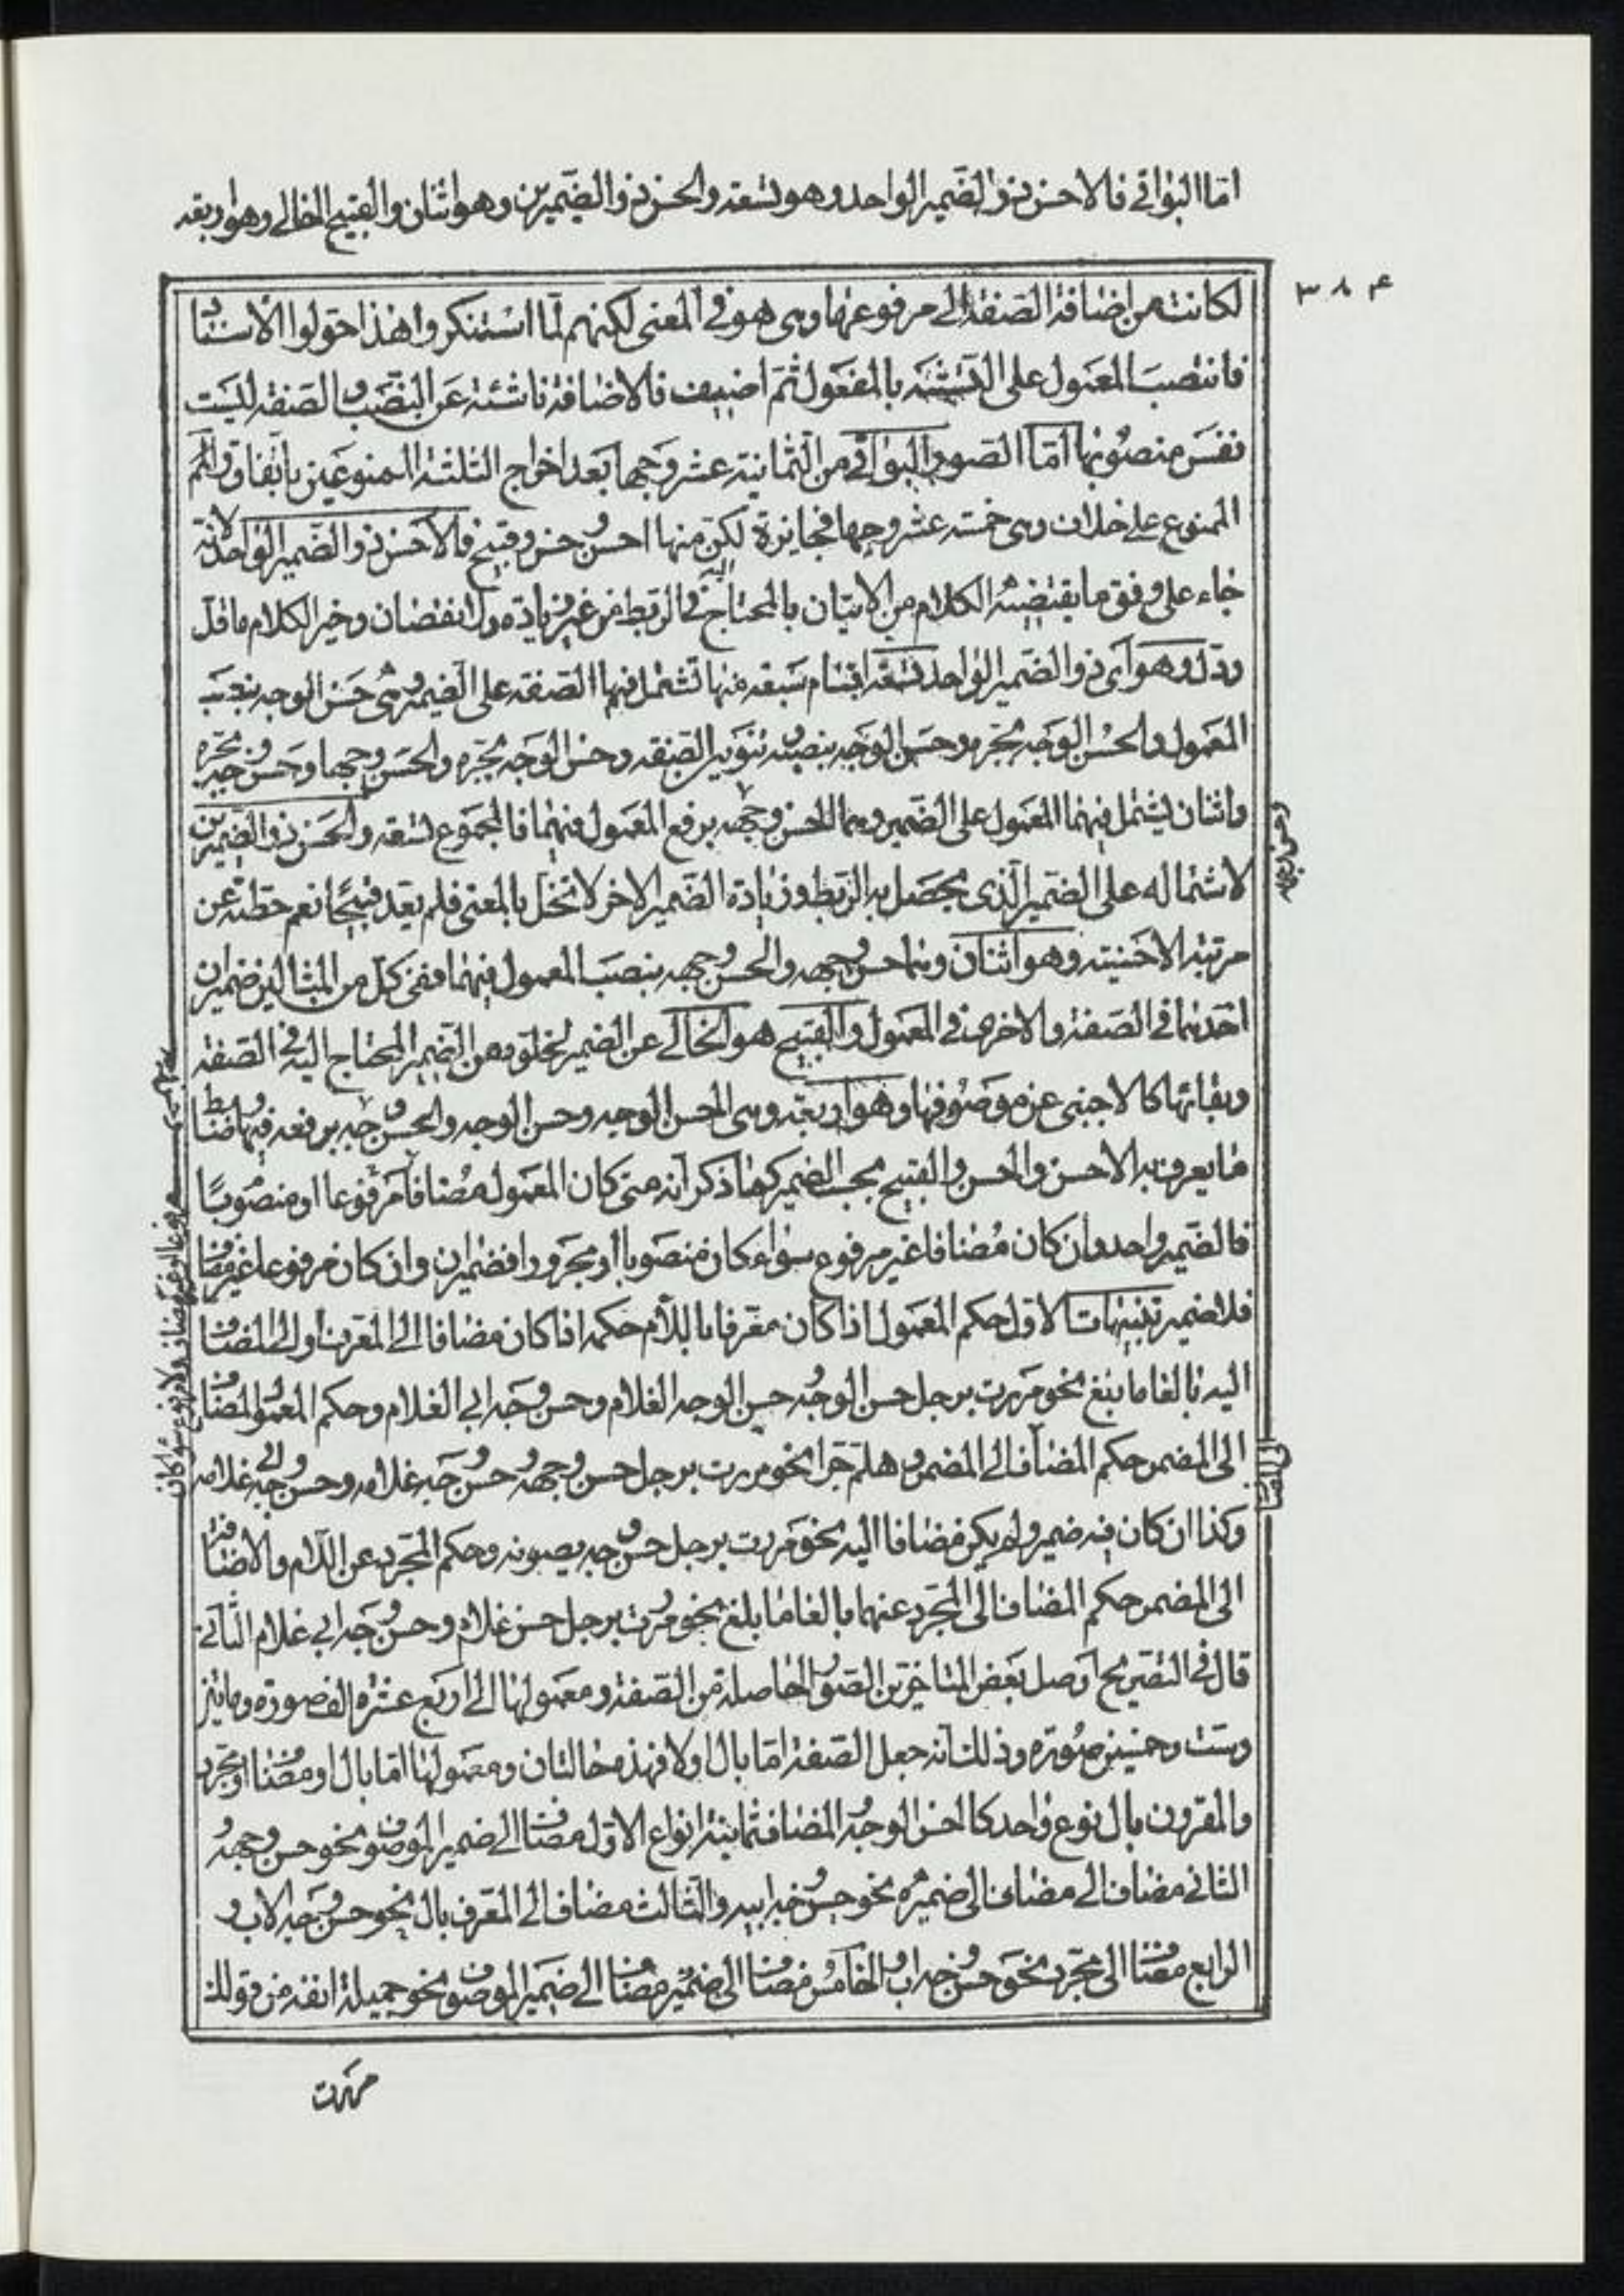 اما البواقى فالاحسن ذو الضمير الواحد وهو تسعة والحسن ذو الضميرين وهو اثنان والقبيح الخالى وهو اربعة
٣٨٤
لكانت من اضافة الصفة الى مرفوعها وهى هو فى المعنى لكنهم لما استنكروا هذا حولوا الاسناد
فانتصب المعمول على التشبيه بالمفعول ثم اضيف فالاضافة ناشئة عن النصب والصفة ليست
نفس منصوبها اما الصور البواقى من الثمانية عشر وجها بعد اخراج الثلثة الممنوعين باتفاق والقسم
الممنوع على خلاف وهى خمسة عشر وجها فجايزة لكن منها احسن وحسن وقبيح فالاحسن ذو الضمير الواحد لانه
جاء على وفق ما يقتضيه الكلام من الاتيان بالمحتاج اليه فى الربط من غير زيادة ولا نقصان وخير الكلام ما قل
ودل وهو اى ذو الضمير الواحد تسعة اقسام سبعة منها تشتمل فيها الصفة على الضمير وهى حسن الوجه بنصب
المعمول والحسن الوجه بجره وحسن الوجه بنصبه بتنوين الصفة وحسن الوجه بجره والحسن وجها وحسن وجه بجره
واثنان يشتمل فيهما المعمول على الضمير وهما الحسن وجهه برفع المعمول فيهما فالمجموع تسعة والحسن ذو الضميرين
لاشتماله على الضمير الذى يحصل به الربط وزيادة الضمير الاخر لا تخل بالمعنى فلم يعد قبيحا نعم حطته عن
مرتبة الاحسنية وهو اثنان وهما حسن وجهه والحسن وجهه بنصب المعمول فيهما ففى كل من المثالين ضميران
احدهما فى الصفة والاخر فى المعمول والقبيح هو الخالى عن الضمير لخلوه عن الضمير المحتاج اليه فى الصفة
وبقائها كالاجنبى عن موصوفها وهو اربعة وهى الحسن الوجه وحسن الوجه والحسن وجه برفعه فيها وضابط
ما يعرف به الاحسن والحسن والقبيح بحسب الضمير كما ذكر انه متى كان المعمول مضافا مرفوعا او منصوبا
فالضمير واحد وان كان مضافا غير مرفوع سواء كان منصوبا او مجرورا فضميران وان كان مرفوعا غير مضاف
فلا ضمير تنبيهات الاول حكم المعمول اذا كان معرفا باللام حكمه اذا كان مضافا الى المعرف او الى المضاف
اليه بالغا ما بلغ نحو مررت برجل حسن الوجه حسن الوجه الغلام وحسن وجه ابى الغلام وحكم المعمول المضاف
الى المضمر حكم المضاف الى المضمر وهلم جرا نحو مررت برجل حسن وجهه حسن وجه غلامه وحسن وجه ابى غلامه
وكذا ان كان فيه ضمير ولم يكن مضافا اليه نحو مررت برجل حسن وجه يصونه وحكم المجرد عن اللام والاضافة
الى المضمر حكم المضاف الى المجرد عنهما بالغا ما بلغ نحو مررت برجل حسن غلام وحسن وجه ابى غلام الثانى
قال فى التصريح اوصل بعض المتاخرين الصور الحاصلة من الصفة ومعمولها الى اربع عشرة الف صورة ومايتين
وست وخمسين صورة وذلك انه جعل الصفة اما بال او لا فهذه حالتان ومعمولها اما بال او مضاف او مجرد
والمقرون بال نوع واحد كالحسن الوجه والمضاف ثمانية انواع الاول مضاف الى ضمير الموصوف نحو حسن وجهه
الثانى مضاف الى مضاف الى ضميره نحو حسن وجه ابيه والثالث مضاف الى المعرف بال نحو حسن وجه الاب و
الرابع مضاف الى مجرد نحو حسن وجه اب والخامس مضاف الى ضمير مضاف الى ضمير الموصوف نحو جميلة انفه من قولك
الى المضاف
مررت